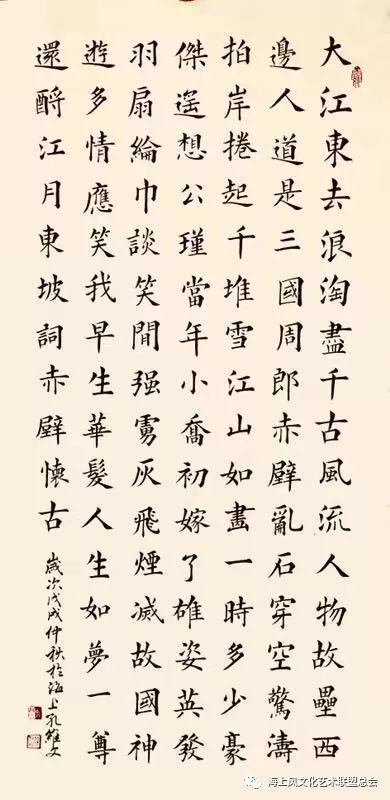 大江東去浪淘盡千古風流人物故壘西
邊人道是三國周郎赤壁亂石穿空驚濤
拍岸捲起千堆雪江山如畫一時多少豪
傑遙想公瑾當年小喬初嫁了雄姿英發
羽扇綸巾談笑間强虜灰飛煙滅故國神
遊多情應笑我早生華髮人生如夢一尊
還酹江月東坡詞赤壁懷古
歲次戊戌仲秋於海上孔維文
海上风文化艺术联盟总会